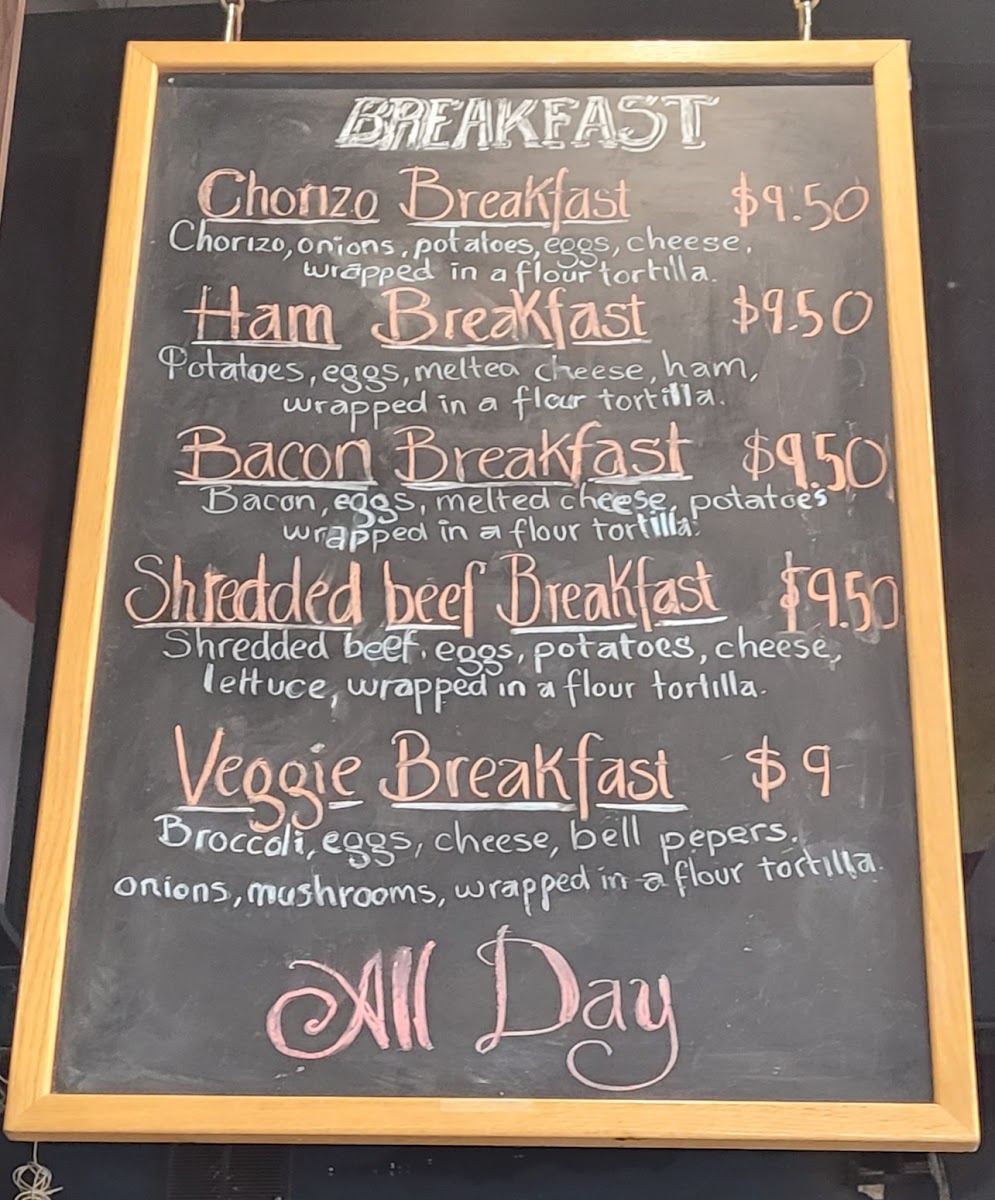 BREAKFAST
Chorizo Breakfast $9.50
Chorizo, onions, potatoes, eggs, cheese,
wrapped in a flour tortilla.
Ham Breakfast $9.50
Potatoes, eggs, melted cheese, ham,
wrapped in a flour tortilla.
Bacon Breakfast $9.50
Bacon, eggs, melted cheese, potatoes
wrapped in a flour tortilla.
Shredded beef Breakfast $9.50
Shredded beef, eggs, potatoes, cheese,
lettuce, wrapped in a flour tortilla.
Veggie Breakfast $9
Broccoli, eggs, cheese, bell pepers,
onions, mushrooms, wrapped in a flour tortilla.
All Day